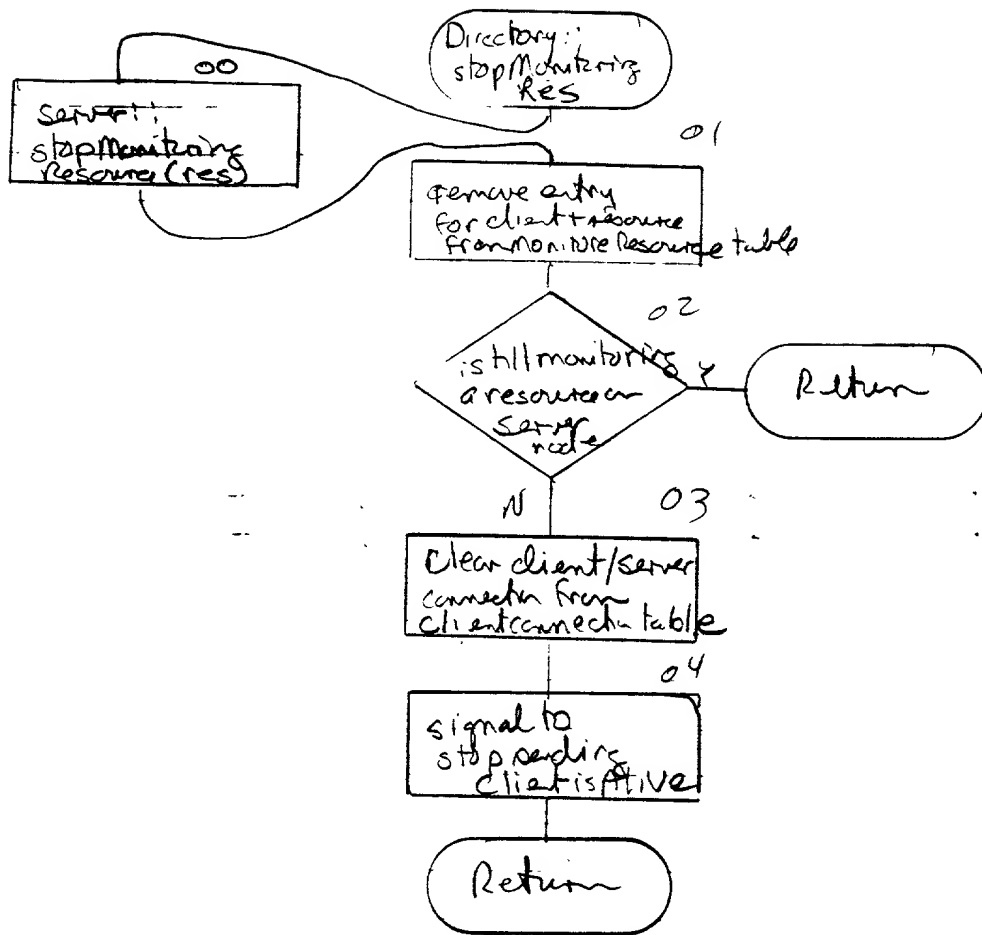 Directory::
stopMonitoring
Res
00
server::
stopMonitoring
Resource(res)
01
remove entry
for client + resource
from Moniture Resource table
02
is till monitoring
a resource on
server
node
Y
Return
N
03
Clear client/server
connectn from
clientconnectn table
04
signal to
stop sending
client is Alive
Return